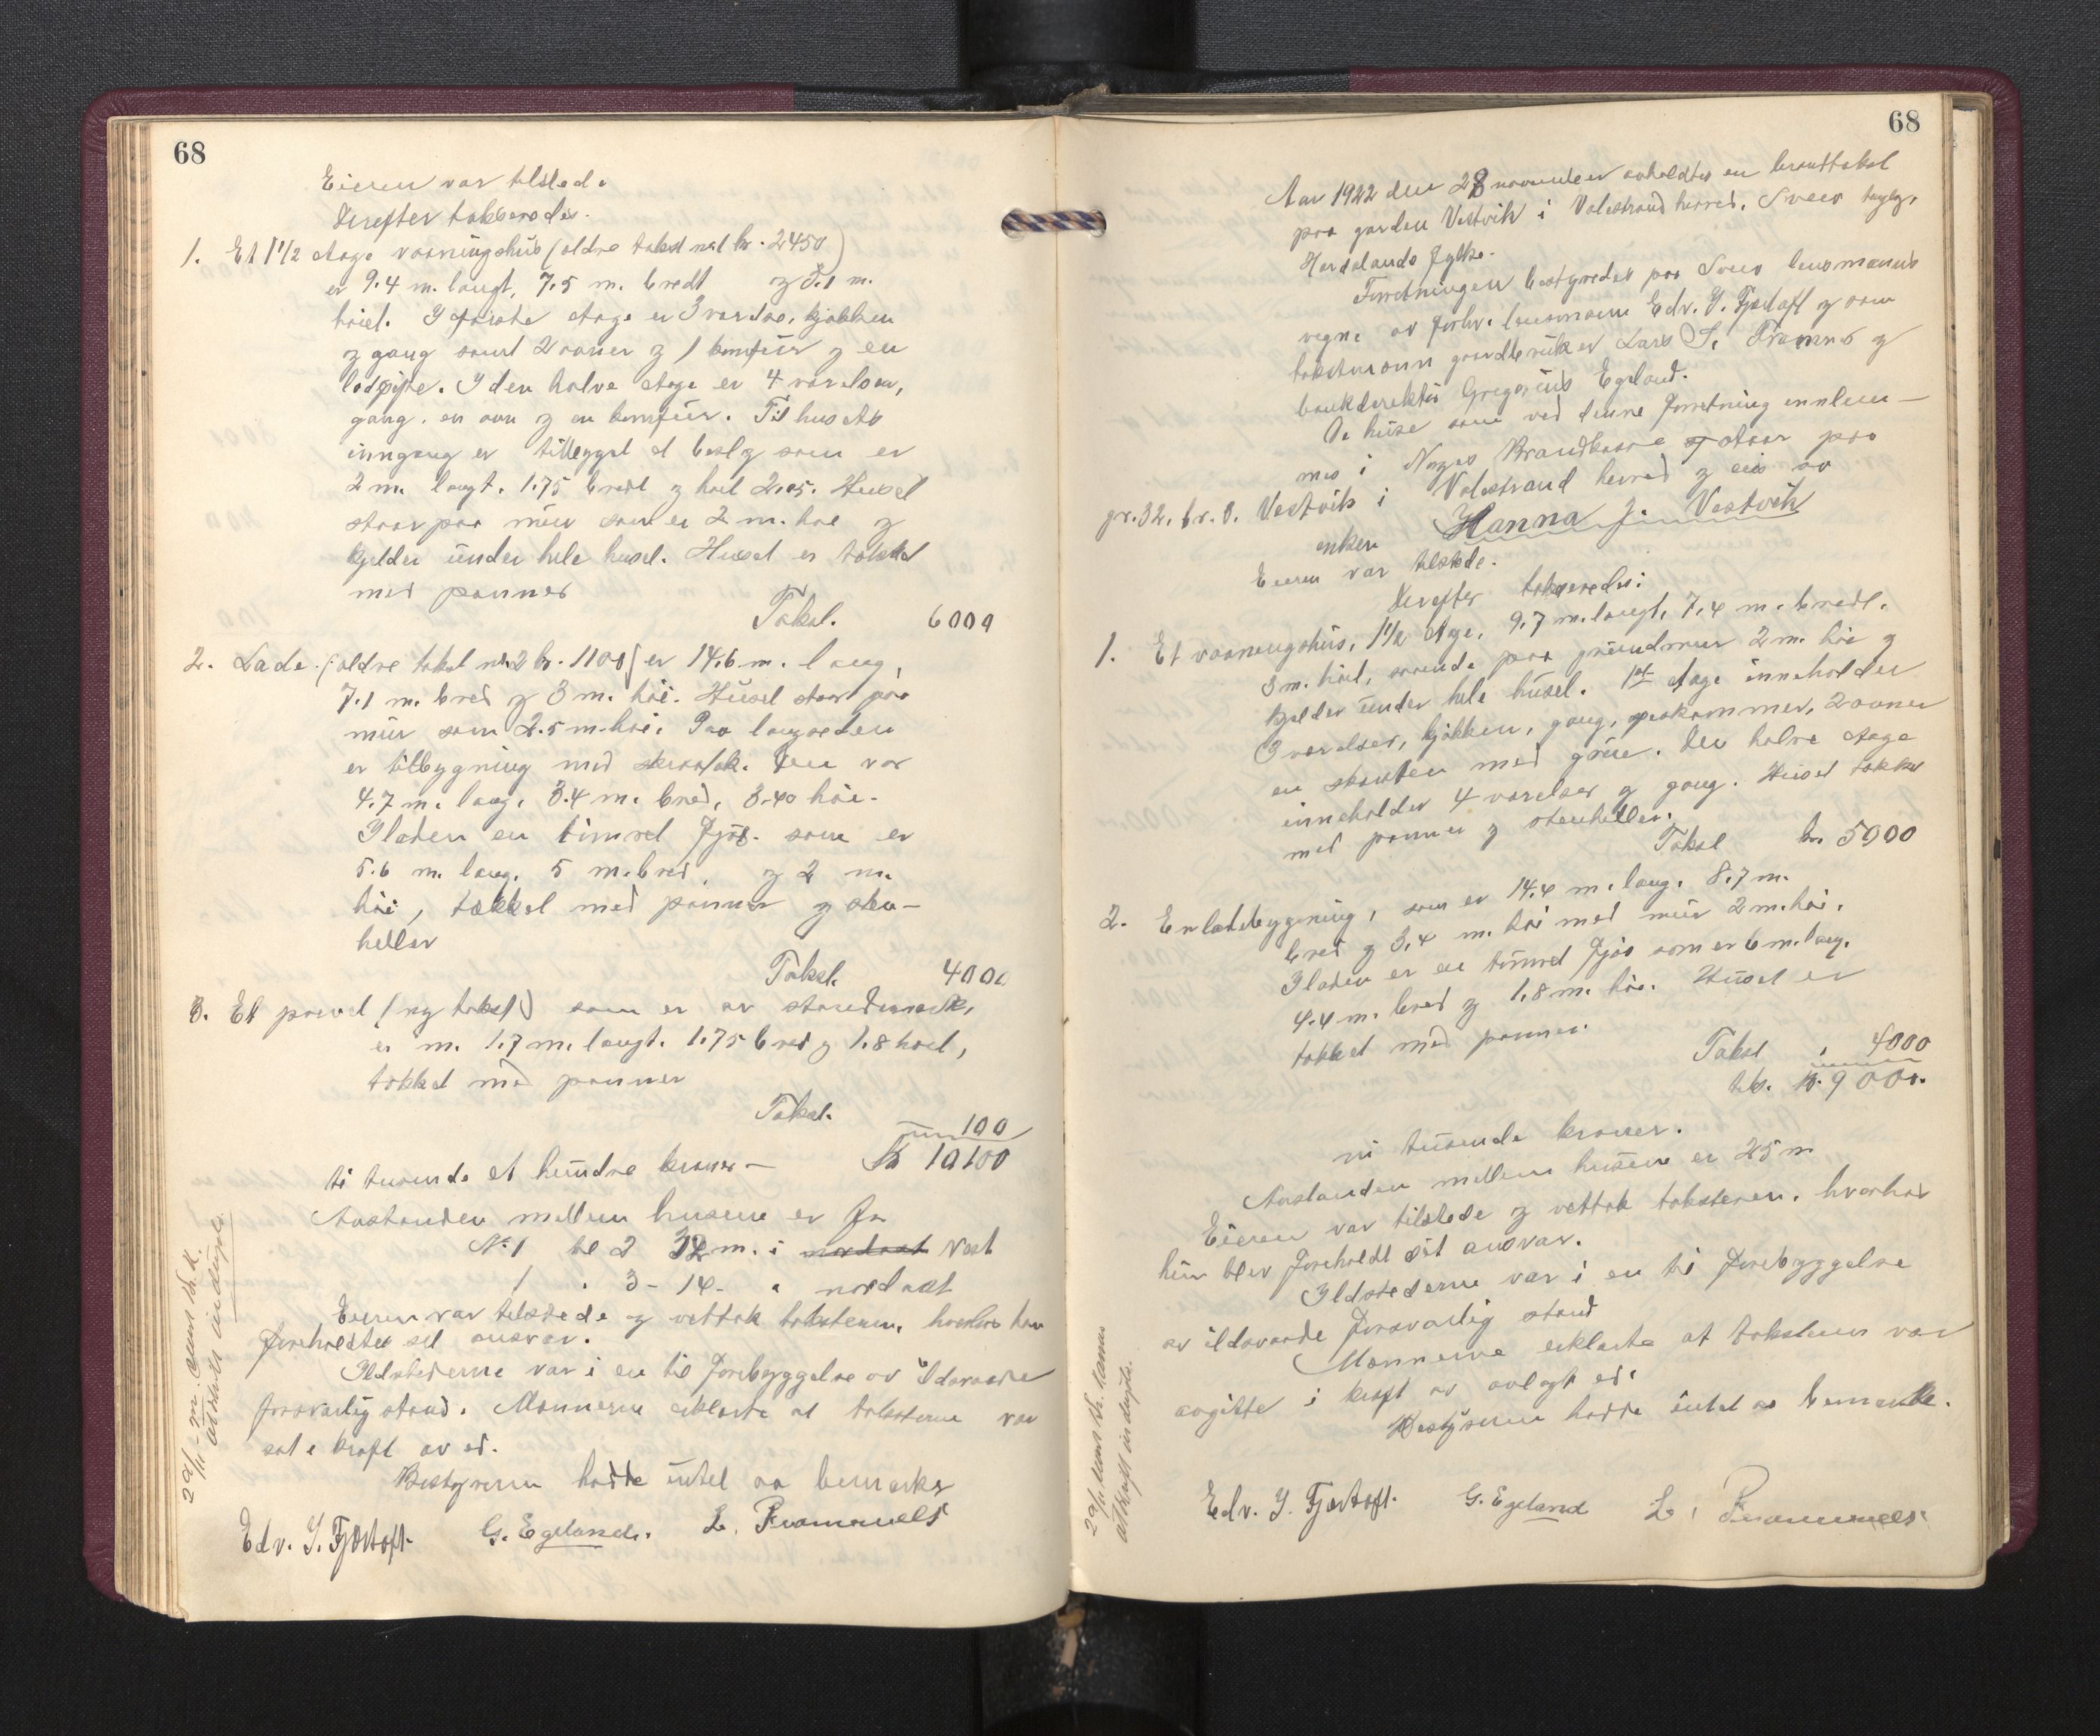 68
Eieren var tilstede
Derefter takseredes.
1. Et 1 1/2 etage vaaningshus (ældre takst no 1 kr. 2450)
er 9.4 m. langt, 7.5 m. bredt og 3.1 m.
høiet. I første etage er 3 værelse, kjøkken
og gang samt 2 ovner og 1 komfur og en
I den halve etage er 4 værelser,
gang, en ovn og en komfur. Til husets
inngang er tilbygget et beslag som er
2 m. langt, 1.75 bredt og høit 2.05. Huset
staar paa mur som er 2 m. høi og
kjelder under hele huset. Huset er tækket
med panner
Takst. 6000
2. Lade. (ældre takst no 2 kr. 1100) er 14.6 m. lang,
7.1 m. bred og 3 m. høi. Huset staar paa
mur som 2.5 m. høi. Paa langsiden
er tilbygning med skraatak. Den var
4.7 m. lang, 3.4 m. bred, 3.40 høi.
I laden en timret fjøs som er
5.6 m. lang, 5 m. bred, og 2 m.
høi, tækket med panner og sten-
heller
Takst. 4000
3. Et (ny takst) som er av standerverk,
er m. 1.7 m. langt. 1.75 bred og 1.8 høit,
tækket med panner
Takst. 100
ti tusende et hundre kroner — Kr 10100
Avstanden mellem husene er fra
No 1 til 2 32 m. i nordost Vest
1 " 3 - 14 - " nordost
Eieren var tilstede og vettok taksterne, hvorhos han
foreholdtes sit ansvar.
Ildstederne var i en til forebyggelse av ildsvaade
forsvarlig stand. Mannerne erklærte at taksterne var
sat i kraft av ed.
Bestyreren hadde intet aa bemerke
Edv. I. Fjørtoft. G. Egeland. L. Frammels
29/11 - 22. anms. br. k.
utskrift indsendt.
68
Aar 1922 den 28 november avholdtes en brantakst
paa garden Vestvik i Valestrand herred, Sveio tinglag,
Hordalands fylke.
Forretningen bestyredes paa Sveio lensmanns
vegne av forhv. lensmann Edv. I. Fjørtoft og som
takstmænn gaardbruker Lars S. Frammes og
bankdirektør Gregorius Egeland.
De huse som ved denne forretning innlem-
mes i Norges Brandkasse staar paa
gr. 32. br. 8. Vestvik i Valestrand herred og eies av
enken Hanna J. Vestvik
Eieren var tilstede.
Derefter takseredes:
1. Et vaaningshus, 1 1/2 etage, 9.7 m. langt, 7.4 m. bredt.
3 m. høit, staaende paa grundmur 2 m. høi og
kjelder under hele huset. 1st etage inneholder
3 værelser, kjøkken, gang, spiskammer, 2 ovner
en skorsten med grue. Den halve etage
inneholder 4 værelser og gang. Huset tækket
med panner og stenheller.
Takst kr. 5000
2. En ladebygning, som er 14.4 m. lang, 8.7 m.
bred og 3.4 m. høi med mur 2 m. høi.
I laden er en timret fjøs som er 6 m. lang,
4.4 m. bred og 1.8 m. høi. Huset er
tækket med panner.
Takst " 4000
tils. kr. 9000.
ni tusende kroner.
Avstanden mellem husene er 25 m
Eieren var tilstede og vettok taksteren, hvorhos
hun blev foreholdt sit ansvar.
Ildstederne var i en til forebyggelse
av ildsvaade forsvarlig stand
Mannerne erklærte at taksterne var
avgitte i kraft av avlagt ed.
Bestyreren hadde intet at bemerke.
Edv. I. Fjørtoft. G. Egeland L. Frammels
29/11 anms. br. kassa
utskrift indsendt.